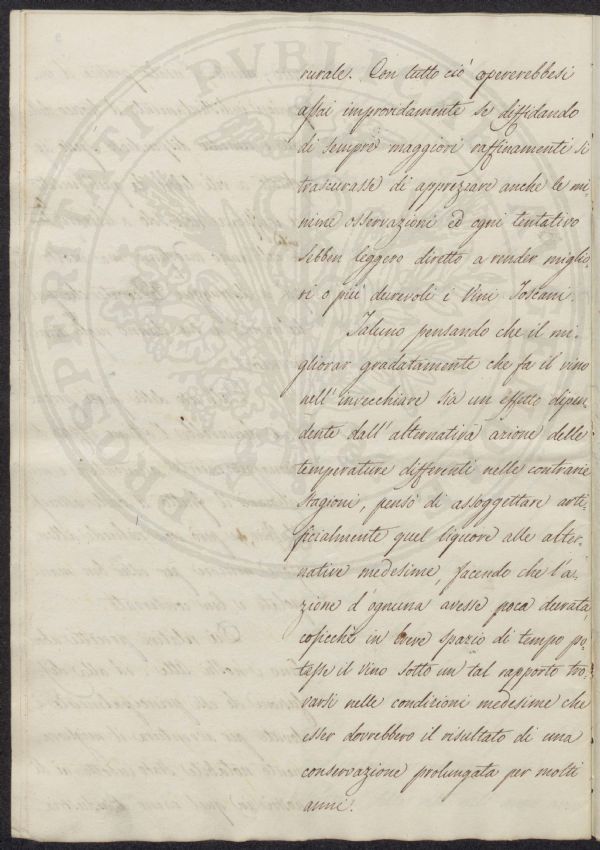 rurale. Con tutto ciò opererebbesi
assai improvidamente se diffidando
di sempre maggiori raffinamenti si
trascurasse di appreziare anche le mi-
nime osservazioni ed ogni tentativo
sebben leggero diretto a render miglio-
ri o più durevoli i Vini Toscani.
Taluno pensando che il mi-
gliorar gradatamente che fa il vino
nell'invecchiare sia un effetto dipen-
dente dall'alternativa azione delle
temperature differenti nelle contrarie
stagioni, pensò di assoggettare arti-
ficialmente quel liquore alle alter-
native medesime, facendo che l'a-
zione d'ognuna avesse poca durata,
cosicchè in breve spazio di tempo po-
tesse il vino sotto un tal rapporto tro-
varsi nelle condizioni medesime che
esser dovrebbero il risultato di una
conservazione prolungata per molti
anni.
PROSPERITATI PVBLICAE